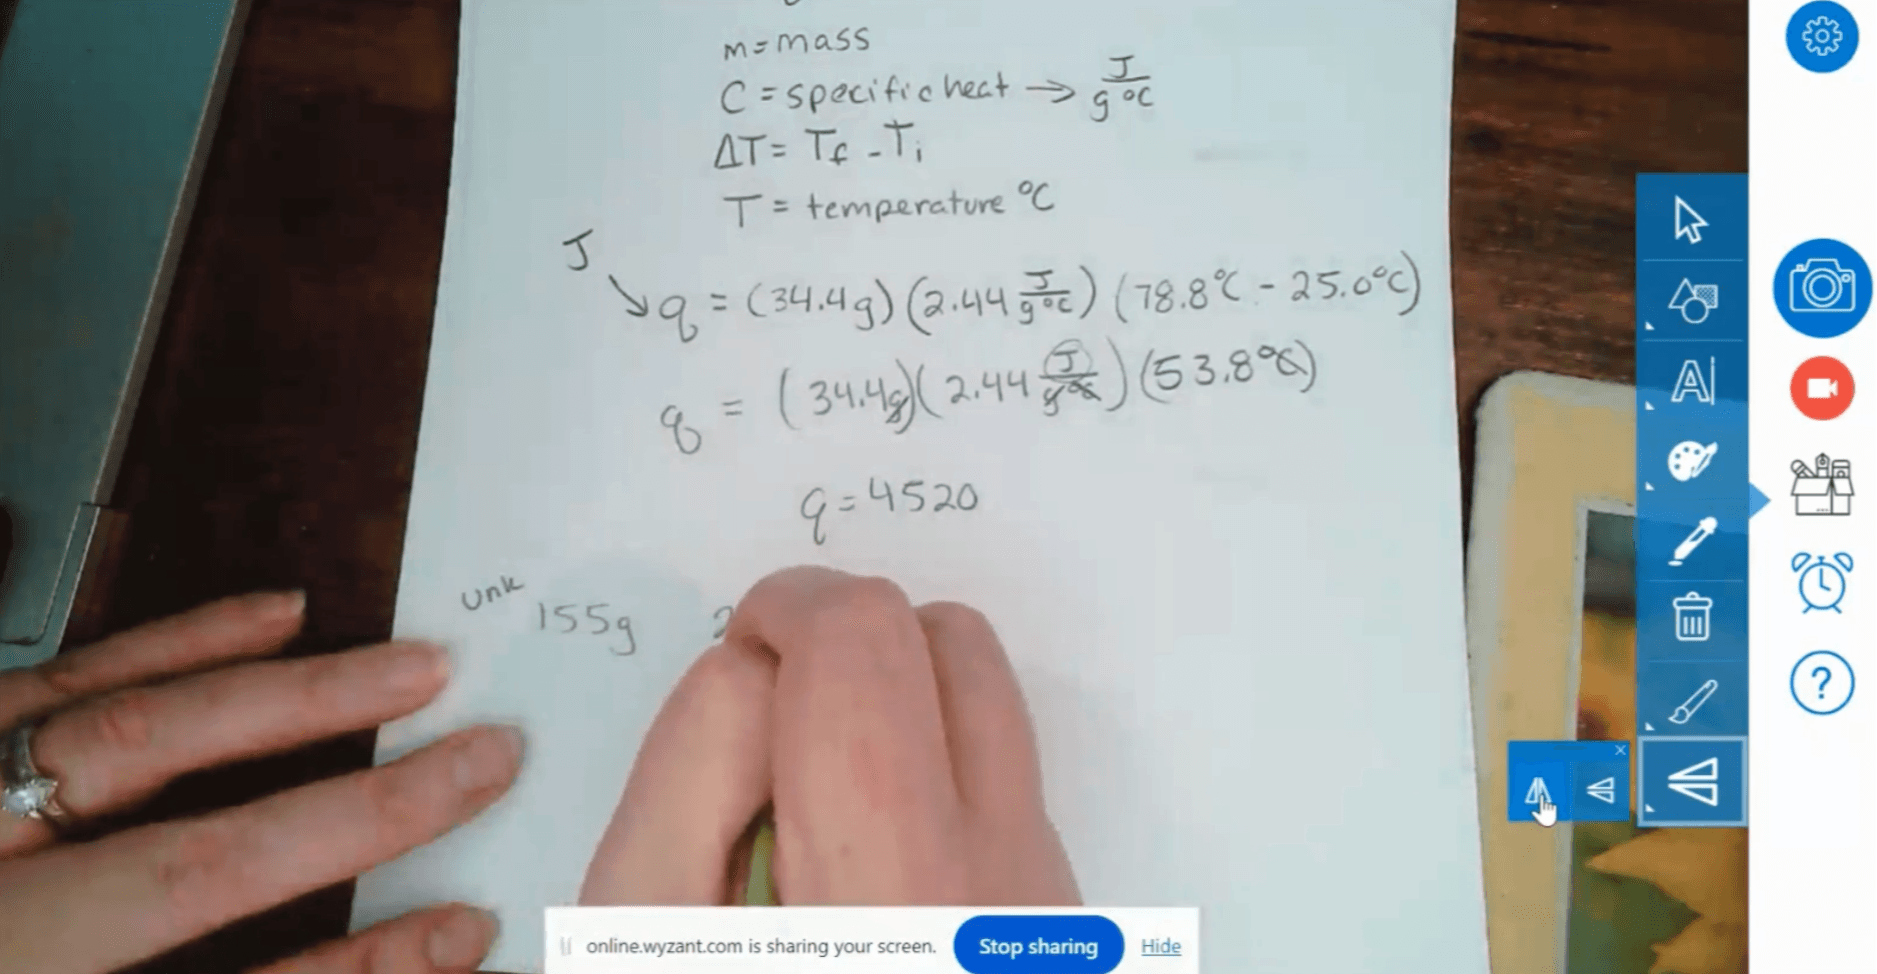 m = mass
C = specific heat → J/g °C
ΔT = Tf - Ti
T = temperature °C
J
q = (34.4g)(2.44 J/g°C)(78.8°C - 25.0°C)
q = (34.4g)(2.44 J/g°C)(53.8°C)
q = 4520
unk
155g 2
A
?
online.wyzant.com is sharing your screen. Stop sharing Hide